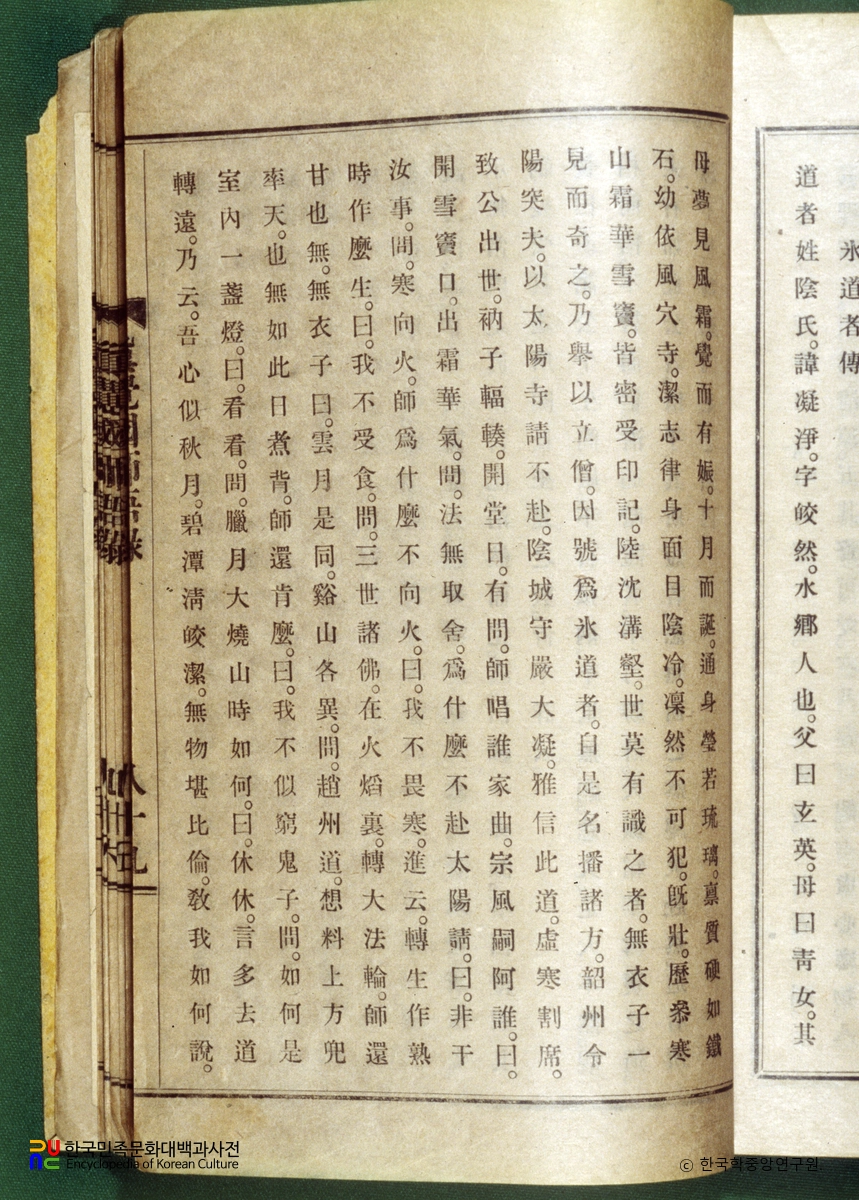 氷道者傳
道者姓陰氏。諱凝淨。字皎然。水鄕人也。父曰玄英。母曰靑女。其
母夢見風霜。覺而有娠。十月而誕。通身瑩若琉璃。禀質硬如鐵
石。幼依風穴寺。潔志律身面目陰冷。凜然不可犯。旣壯。歷叅寒
山霜華雪竇。皆密受印記。陸沈溝壑。世莫有識之者。無衣子一
見而奇之。乃擧以立僧。因號爲氷道者。自是名播諸方。韶州令
陽突夫。以太陽寺請不赴。陰城守嚴大凝。雅信此道。虛寒割席。
致公出世。衲子輻輳。開堂日。有問。師唱誰家曲。宗風嗣阿誰。曰。
開雪竇口。出霜華氣。問。法無取舍。爲什麼不赴太陽請。曰。非干
汝事。問。寒向火。師爲什麼不向火。曰。我不畏寒。進云。轉生作熟
時作麼生。曰。我不受食。問。三世諸佛。在火熖裏。轉大法輪。師還
甘也無。無衣子曰。雲月是同。谿山各異。問。趙州道。想料上方兜
率天。也無如此日煮背。師還肯麼。曰。我不似窮鬼子。問。如何是
室內一盞燈。曰。看看。問。臘月大燒山時如何。曰。休休。言多去道
轉遠。乃云。吾心似秋月。碧潭淸皎潔。無物堪比倫。敎我如何說。
眞覺國師語錄
八十九
한국민족문화대백과사전
Encyclopedia of Korean Culture
© 한국학중앙연구원